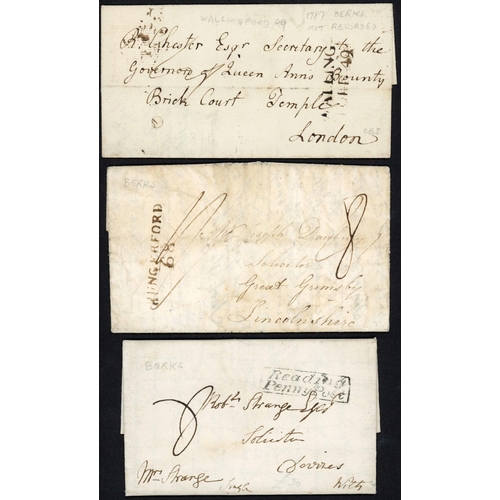 WALLINGFORD 49
1787 BERKS
NOT RECORDED
R. Chester Esqr. Secretary to the
Governors of Queen Ann's Bounty
Brick Court Temple
London
BERKS
HUNGERFORD
68
8
Joseph
Solicitor
Great Grimsby
Lincolnshire
BERKS
Reading
Penny Post
Robt. Strange Esqr
Solicitor
Devizes
Mrs Strange
Single
Wilts